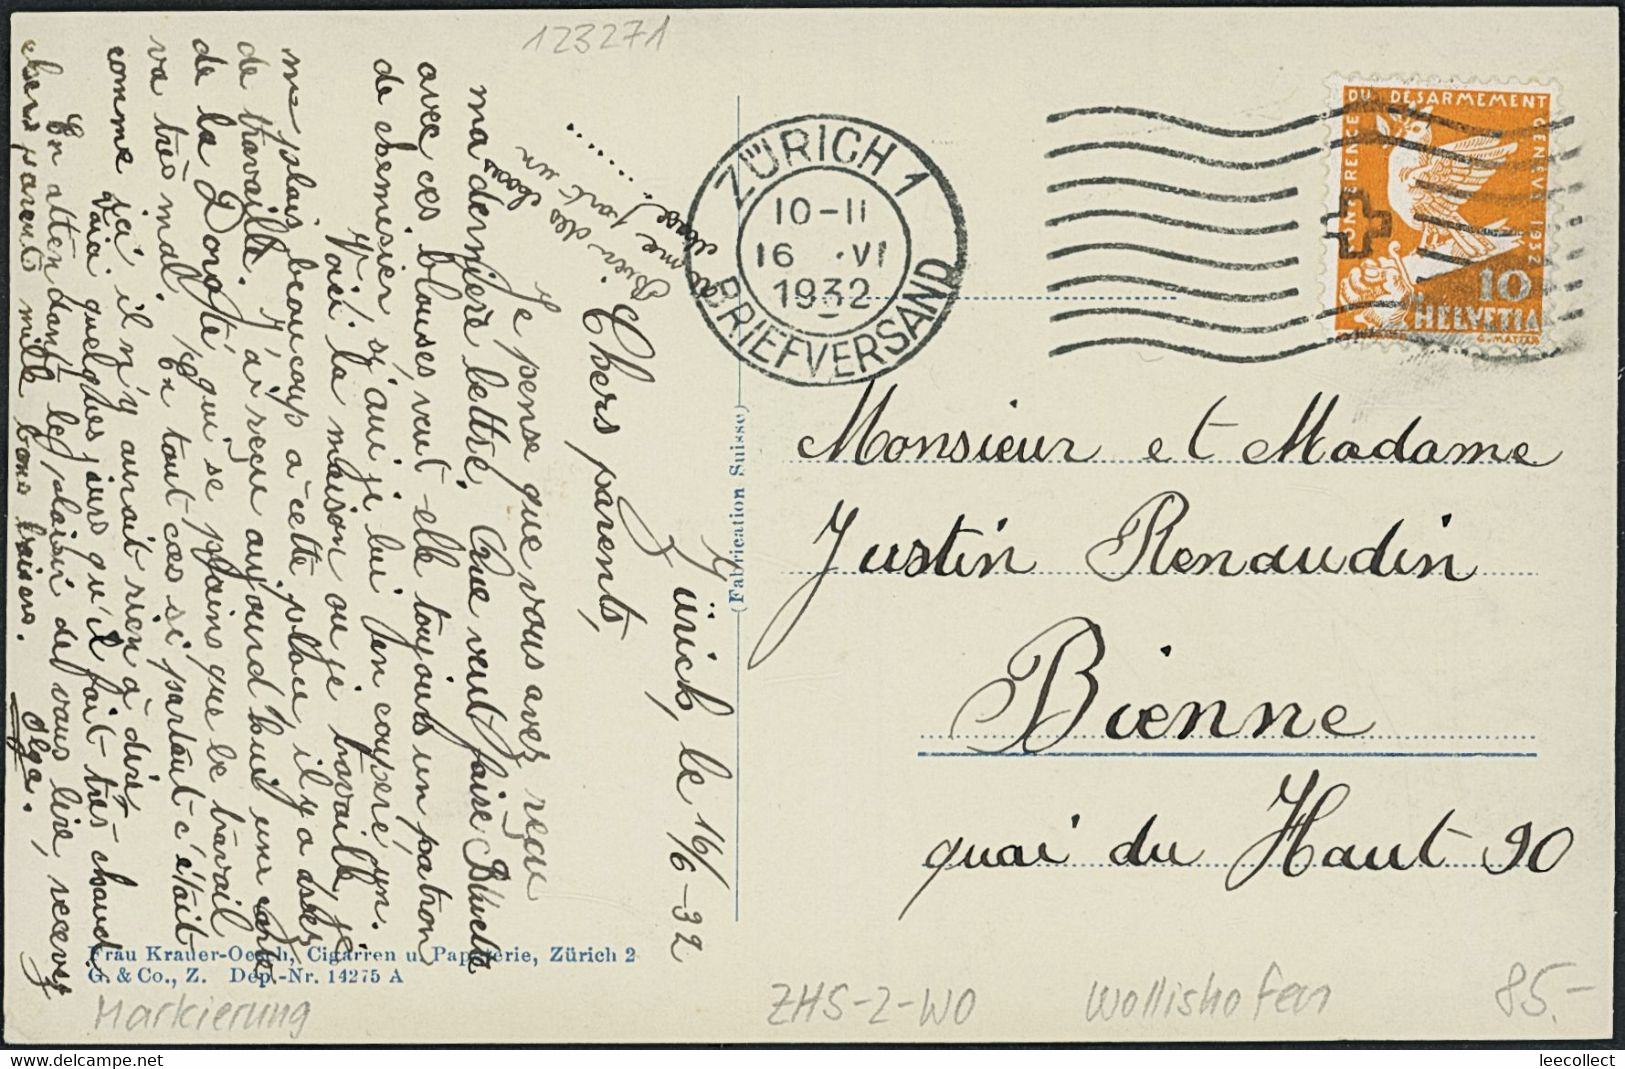 123271
Zürich, le 16/6-32
Chers parents,
Je pense que vous avez reçu
ma dernière lettre. Que veut faire
avec ces blouses, veut-elle toujours un patron
de chemisier, si oui je lui en couperé un.
Voici la maison ou je travaille, je
me plais beaucoup a cette place, il y a assez
de travaille. J'ai reçu aujourd'huit une carte
de la Dongté qui se plains que le travail
va très mal, en tout cas si partout c'était
comme ici, il n'y aurait rien à dire.
Voici quelques jours qu'il fait très chaud.
En attendant le plaisir de vous lire, recevez
chers parents mille bons baisers.
Olga.
(Fabrication Suisse)
ZÜRICH 1
10-11
16 . VI
1932
BRIEFVERSAND
CONFERENCE DU DESARMEMENT GENEVE 1932
10
HELVETIA
Monsieur et Madame
Justin Renaudin
Bienne
quai du Haut 90
Frau Krauer-Oesch, Cigarren u. Papeterie, Zürich 2
G. & Co., Z. Dep.-Nr. 14275 A
Markierung
ZHS-2-WO
Wollishofen
85.-
leecollect